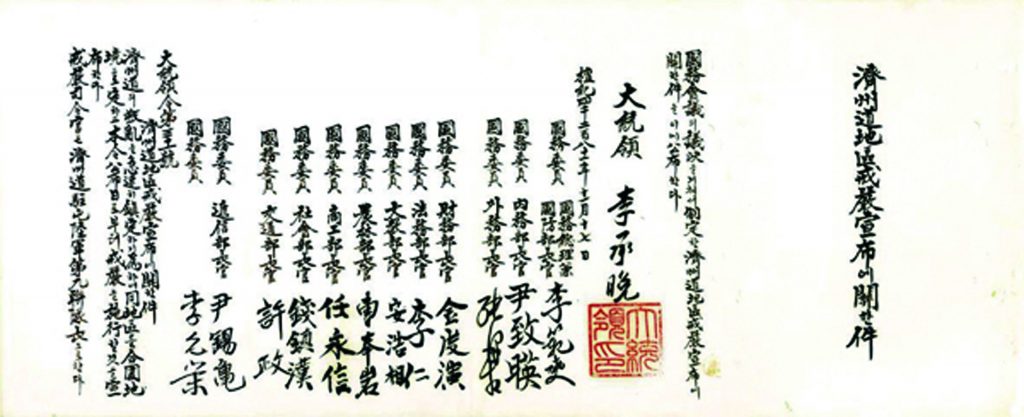 濟州道地區戒嚴宣布에關한件
國務會議의議決을거쳐서制定한濟州道地區戒嚴宣布에
關한件을이에公布한다
大統領 李承晩
大統領印
檀紀四千二百八十一年十一月十七日
國務總理兼
國務委員 國防部長官 李範奭
國務委員 內務部長官 尹致暎
國務委員 外務部長官
國務委員 財務部長官 金度演
國務委員 法務部長官 李仁
國務委員 文敎部長官 安浩相
國務委員 農林部長官
國務委員 商工部長官 任永信
國務委員 社會部長官 錢鎭漢
國務委員 交通部長官 許政
國務委員 遞信部長官 尹錫龜
國務委員 李允榮
大統領令第三十一號
濟州道地區戒嚴宣布에關한件
濟州道의叛亂을急速히鎭定하기爲하여同地區를合圍地
境으로定하고本令公布日로부터戒嚴을施行할것을宣
布한다
戒嚴司令官은濟州道駐屯陸軍第九聯隊長으로한다